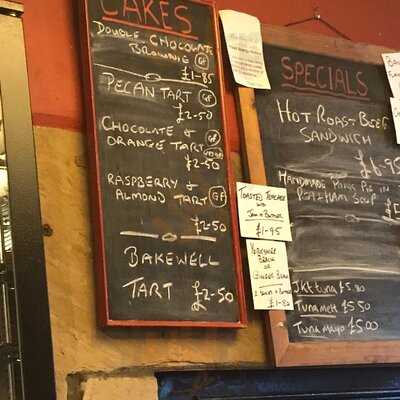 CAKES
DOUBLE CHOCOLATE
BROWNIE GF
£1-85
PECAN TART GF
£2-50
CHOCOLATE & GF
ORANGE TART
£2-50
RASPBERRY & GF
ALMOND TART
£2-50
BAKEWELL
TART £2-50
SPECIALS
HOT ROAST BEEF
SANDWICH
£6-95
HANDMADE PORK PIE IN
PEA & HAM SOUP £5
JKt tuna £5.80
Tuna melt £5.50
Tuna mayo £5.00
TOASTED TEACAKE
with
Jam & Butter
£1-95
YORKSHIRE
BRACK
or
GINGER
£1-80